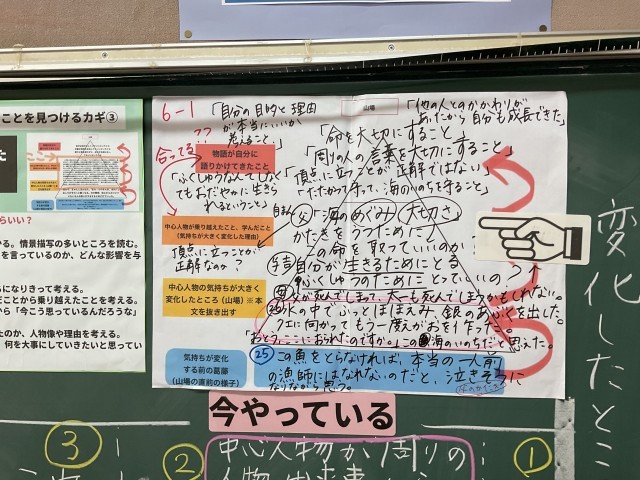 ことを見つけるカギ③
6-1
「自分の目的と理由
が本当にいいか
考えること」
山場
「他の人とのかかわりが
あったから自分も成長できた」
合ってる
物語が自分に
語りかけてきたこと
「命を大切にすること」
「周りの人の言葉を大切にすること」
「ふくしゅうなんてしなく
てもおだやかに生きら
れるということ」
「頂点に立つことが正解ではない」
海のいのちを守ること」
中心人物が乗り越えたこと、学んだこと
(気持ちが大きく変化した理由)
頂点に立つことが
正解なのか?
父「海のめぐみ 大切さ」
かたきをうつために
この命を取っていいのか?
自分が生きるためにとる
ふくしゅうのためにとっていいの?
中心人物の気持ちが大きく
変化したところ(山場)※本
文を抜き出す
父が死んでしまって、太一も死んでしまうかもしれない。
水の中でふっとほほえみ、銀のあぶくを出した。
クエに向かってもう一度えがおを作った。
「おとう、ここにおられたのですか。
海のいのちだと思えた。
気持ちが変化
する前の葛藤
(山場の直前の様子)
25
この魚をとらなければ、本当の一人前
の漁師にはなれないのだと、泣きそうに
なりながら思う。
らいい?
かる。情景描写の多いところを読む。
を言っているのか、どんな影響を与
になりきって考える。
だことから乗り越えたことを考える。
から「今こう思っているんだろうな」
たのか、人物像や理由を考える。
、何を大事にしていきたいと思ってい
変化したとこ
今やっている
③
②
中心人物が周りの
①